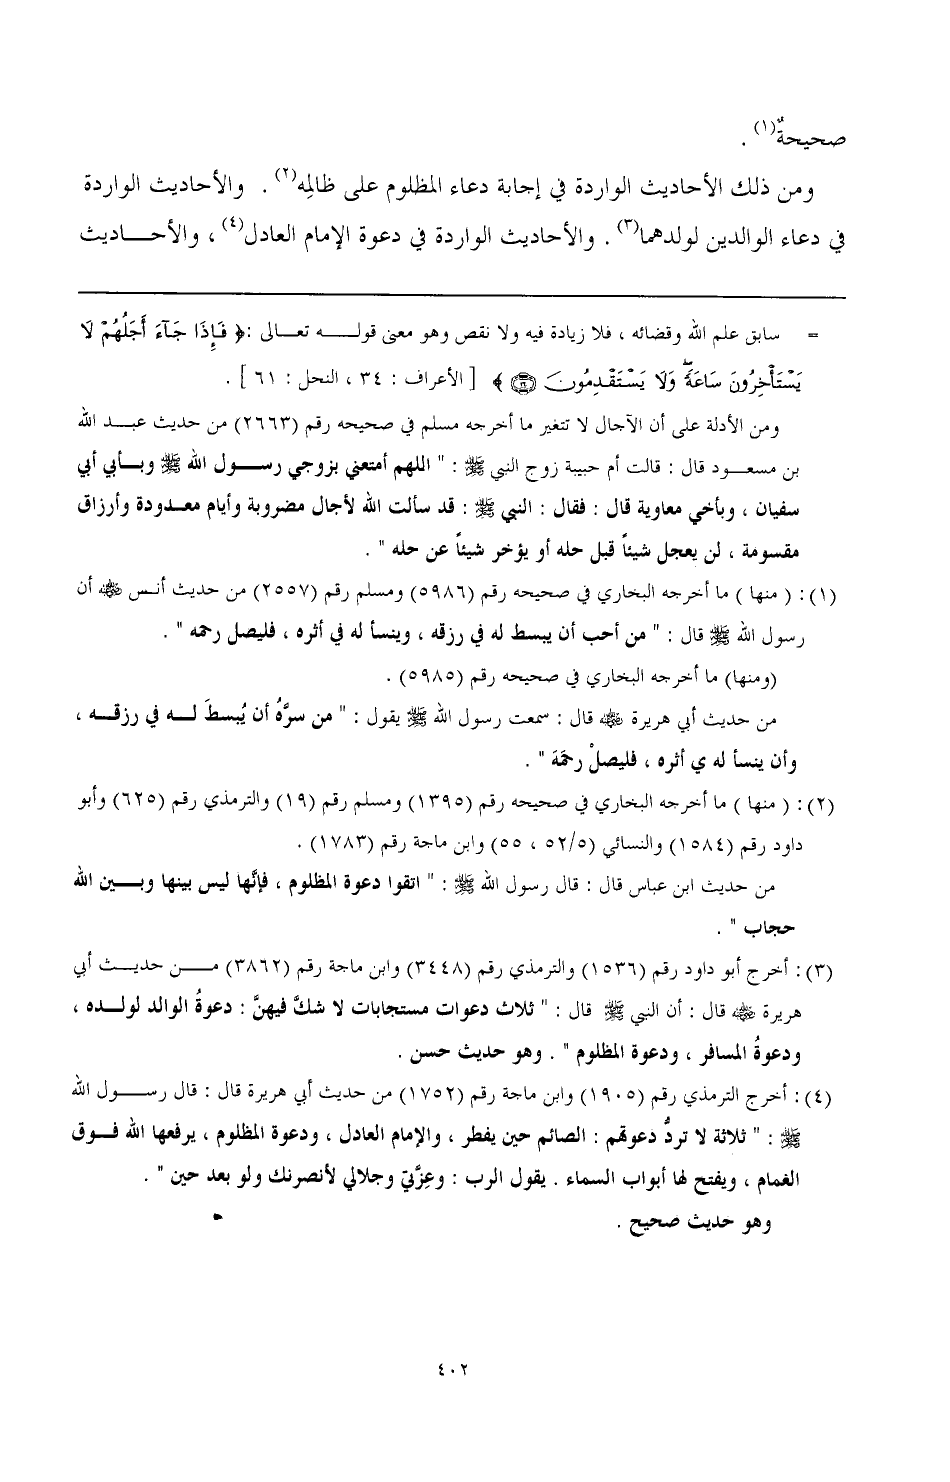 صحيحةٌ(١) .
ومن ذلك الأحاديث الواردة في إجابة دعاء المظلوم على ظالِمه(٢) . والأحاديث الواردة
في دعاء الوالدين لولدهما(٣) . والأحاديث الواردة في دعوة الإمام العادل(٤) ، والأحـــاديث
= سابق علم الله وقضائه ، فلا زيادة فيه ولا نقص وهو معنى قولـــه تعـالى :﴿ فَإِذَا جَآءَ أَجَلُهُمْ لَا
يَسْتَأْخِرُونَ سَاعَةً وَلَا يَسْتَقْدِمُونَ ﴾ [ الأعراف : ٣٤ ، النحل : ٦١ ] .
ومن الأدلة على أن الآجال لا تتغير ما أخرجه مسلم في صحيحه رقم (٢٦٦٣) من حديث عبـد الله
بن مسعـود قال : قالت أم حبيبة زوج النبي ﷺ : " اللهم أمتعني بزوجي رســول الله ﷺ وبـأبي أبي
سفيان ، وبأخي معاوية قال : فقال : النبي ﷺ : قد سألت الله لأجال مضروبة وأيام معـدودة وأرزاق
مقسومة ، لن يعجل شيئاً قبل حله أو يؤخر شيئاً عن حله " .
(١): ( منها ) ما أخرجه البخاري في صحيحه رقم (٥٩٨٦) ومسلم رقم (٢٥٥٧) من حديث أنـس ﷺ أن
رسول الله ﷺ قال : " من أحب أن يبسط له في رزقه ، وينسأ له في أثره ، فليصل رحمه " .
(ومنها) ما أخرجه البخاري في صحيحه رقم (٥٩٨٥) .
من حديث أبي هريرة رضي الله عنه قال : سمعت رسول الله ﷺ يقول : " من سرَّهُ أن يُبسطَ لـــه في رزقــه ،
وأن ينسأ له ي أثره ، فليصلْ رحمَهَ " .
(٢): ( منها ) ما أخرجه البخاري في صحيحه رقم (١٣٩٥) ومسلم رقم (١٩) والترمذي رقم (٦٢٥) وأبو
داود رقم (١٥٨٤) والنسائي (٥٢/٥ ، ٥٥) وابن ماجة رقم (١٧٨٣) .
من حديث ابن عباس قال : قال رسول الله ﷺ : " اتقوا دعوة المظلوم ، فإنَّها ليس بينها وبـــين الله
حجاب " .
(٣): أخرج أبو داود رقم (١٥٣٦) والترمذي رقم (٣٤٤٨) وابن ماجة رقم (٣٨٦٢) مـــن حديـث أبي
هريرة رضي الله عنه قال : أن النبي ﷺ قال : " ثلاث دعوات مستجابات لا شكَّ فيهنَّ : دعوةُ الوالد لولـده ،
ودعوةُ المسافر ، ودعوة المظلوم " . وهو حديث حسن .
(٤): أخرج الترمذي رقم (١٩٠٥) وابن ماجة رقم (١٧٥٢) من حديث أبي هريرة قال : قال رســـول الله
ﷺ : " ثلاثة لا تردُّ دعوتهم : الصائم حين يفطر ، والإمام العادل ، ودعوة المظلوم ، يرفعها الله فــوق
الغمام ، ويفتح لها أبواب السماء . يقول الرب : وعِزَّتي وجلالي لأنصرنك ولو بعد حين " .
وهو حديث صحيح .
٤٠٢